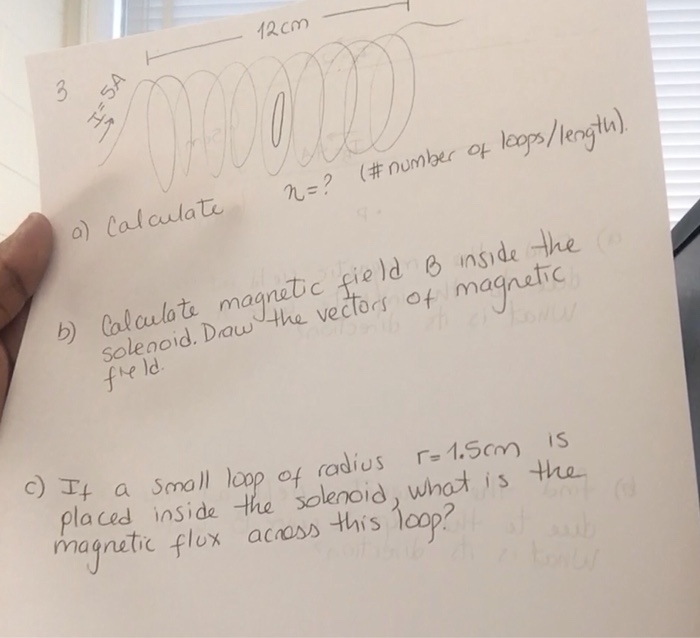 12cm
3
I=5A
a) Calculate n=? (# number of loops/length).
b) Calculate magnetic field B inside the
solenoid. Draw the vectors of magnetic
field.
c) If a small loop of radius r=1.5cm is
placed inside the solenoid, what is the
magnetic flux across this loop?